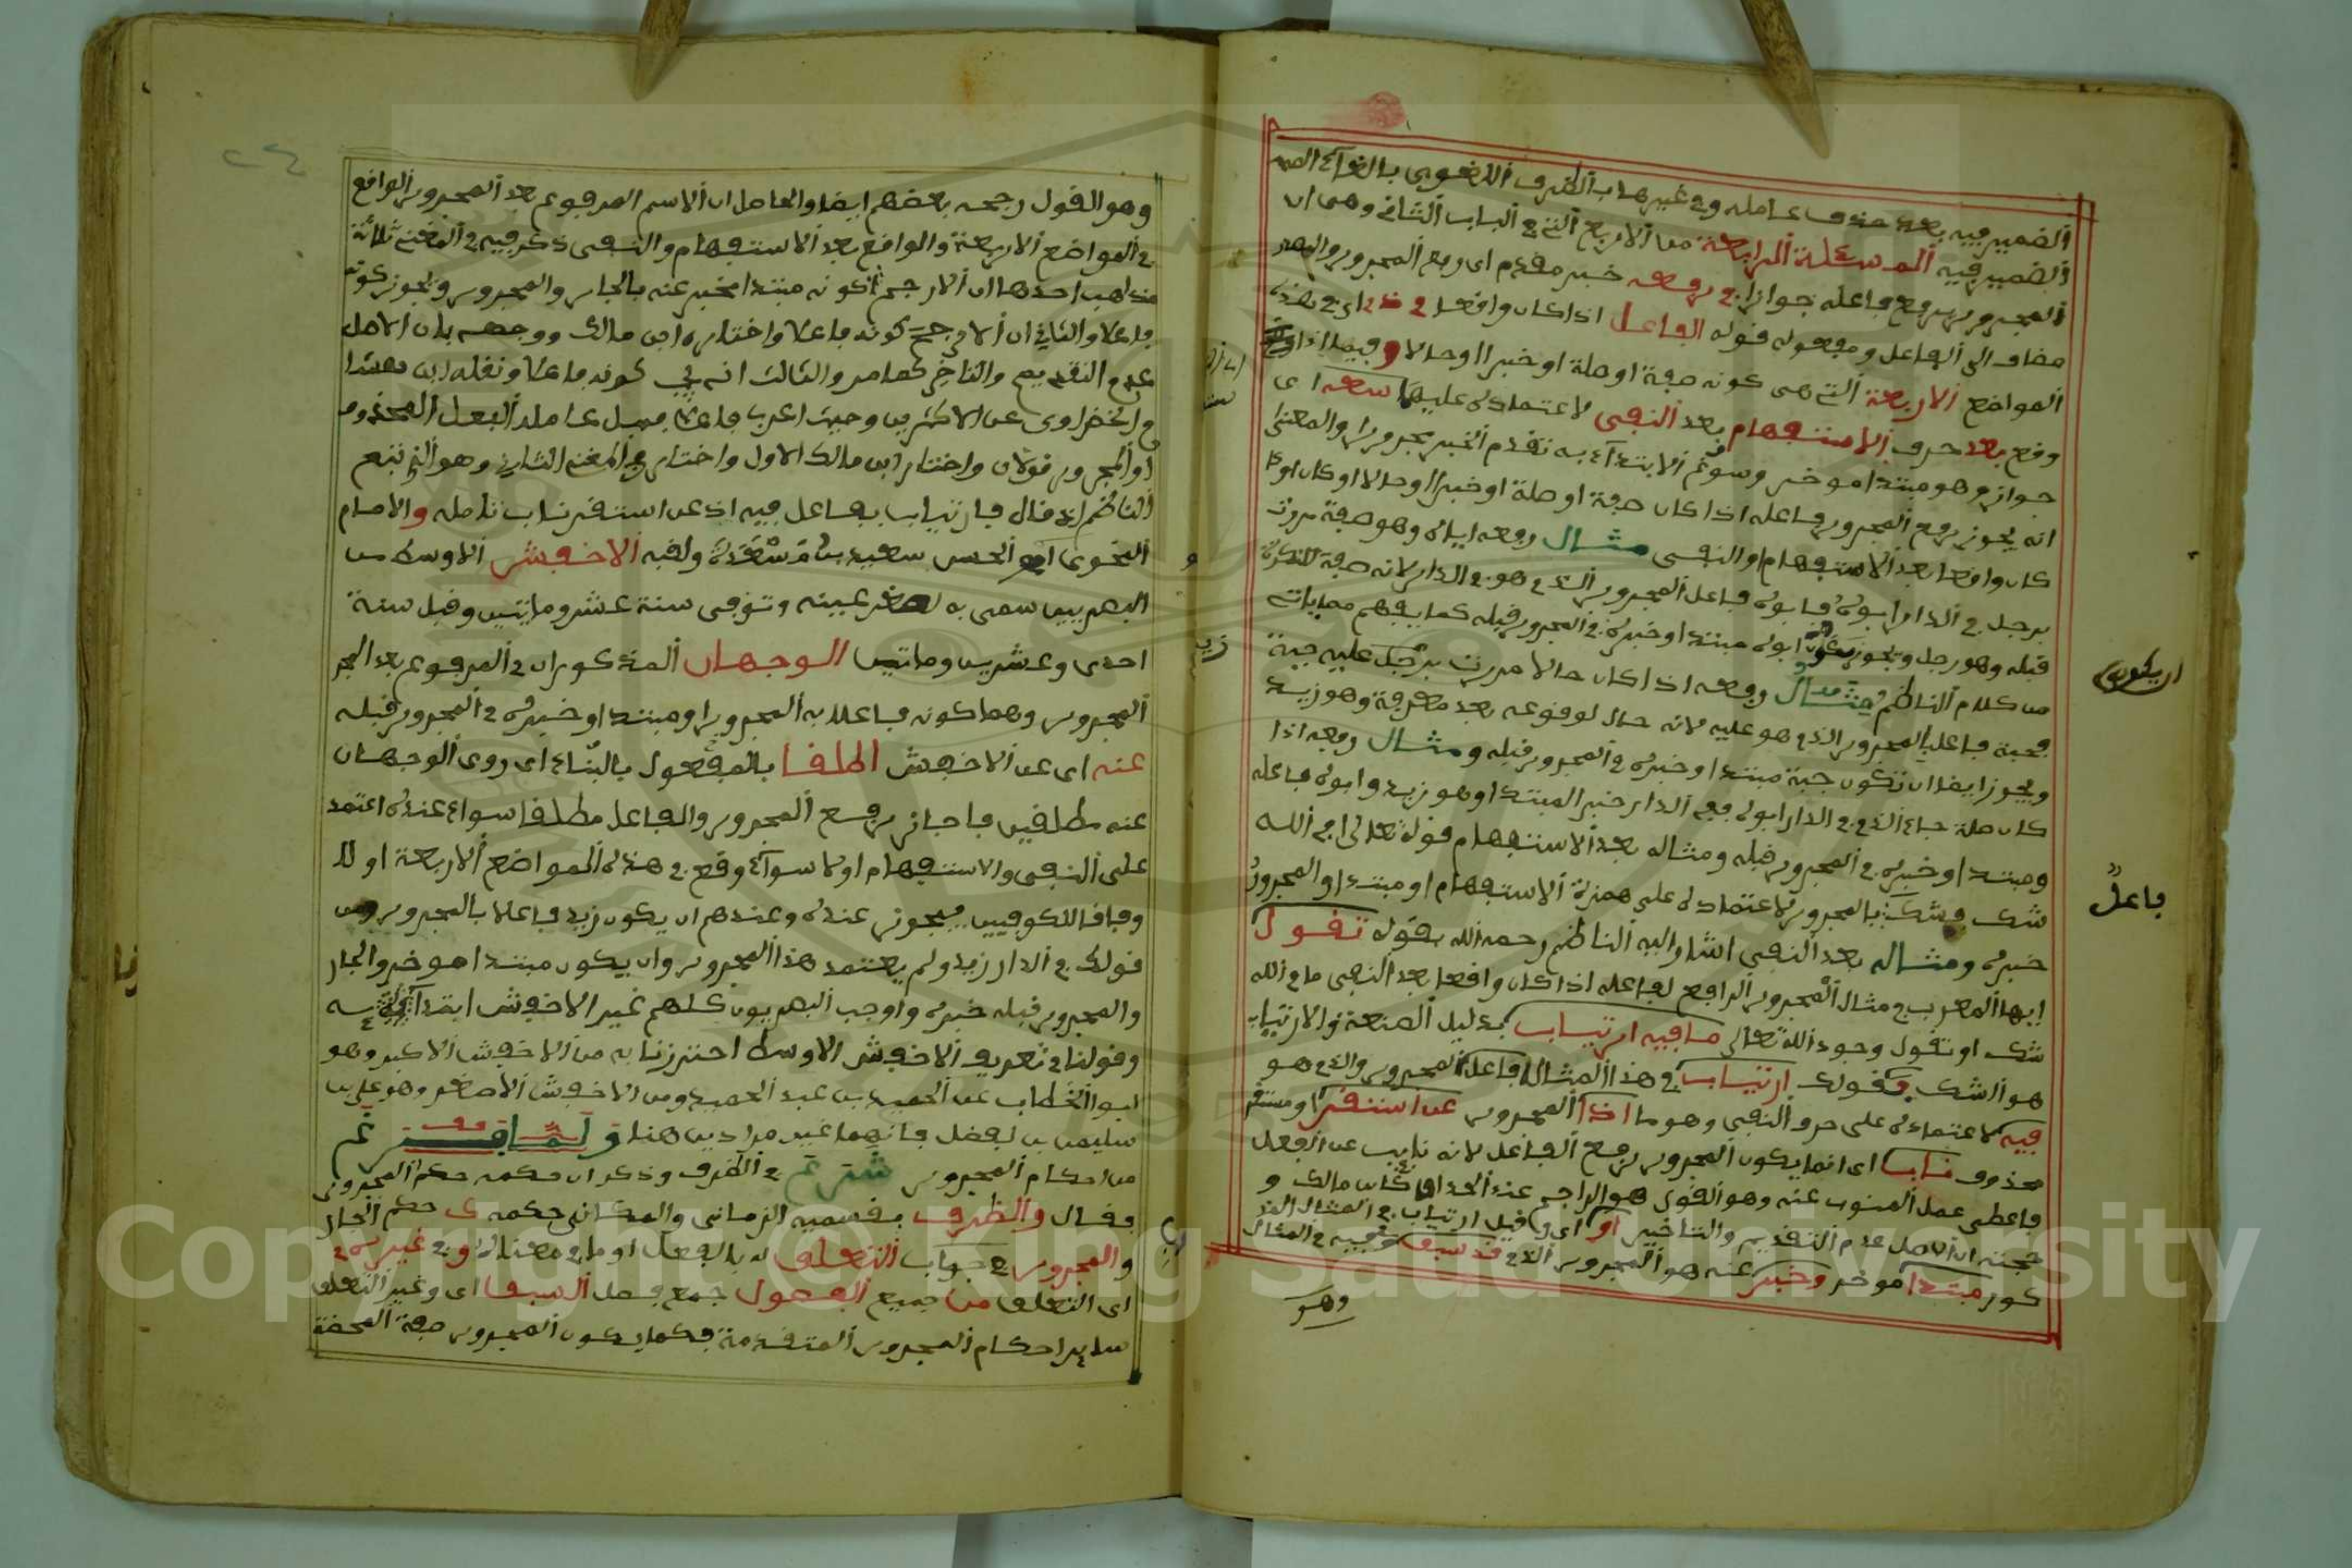 الضمير فيه بعد حذف عامله وفي غيرها بالظرف اللغوي
الضمير فيه المسئلة الرابعة من الاربع التي في الباب الثاني وهي ان
المجرور يرفع فاعله جوازا في رفعه خبر مقدم اي رفع المجرور والمصدر
مضاف الى الفاعل ومفعوله قوله الفاعل اذا كان واقعا في ذي اي في هذه
المواضع الاربعة التي هي كونه صفة او صلة او خبرا او حالا وفيما اذا
وقع بعد حرف الاستفهام بعد النفي لاعتماده عليها سعه اى
جواز وهو مبتدا موخر وسوغ الابتداء به تقدم الخبر مجرورا والمعنى
انه يجوز رفع المجرور فاعله اذا كان صفة او صلة او خبرا او حالا او كان او
كان واقعا بعد الاستفهام او النفي مثال رفعه اياه وهو صفة مررت
برجل في الدار ابوه فابوه فاعل المجرور الذي هو في الدار لانه صفة للنكرة
قبله وهو رجل ويجوز ابوه مبتدا وخبره في المجرور قبله كما يفهم مما ياتي
من كلام الناظم ومثال رفعه اذا كان حالا مررت بزيد عليه جبة
فجبة فاعل بالمجرور الذي هو عليه لانه حال لوقوعه بعد معرفة وهو زيد
ويجوز ايضا ان تكون جبة مبتدا وخبره في المجرور قبله ومثال رفعه اذا
كان صلة جاء الذي في الدار ابوه ففي الدار خبر المبتدا وهو زيد وابوه فاعله
ومبتدا وخبره في المجرور قبله ومثاله بعد الاستفهام قوله تعالى افي الله
شك فشك بالمجرور لاعتماده على همزة الاستفهام او مبتدا والمجرور
خبره ومثاله بعد النفي اشار اليه الناظم رحمه الله بقوله تقول
ايها المعرب في مثال المجرور الرافع لفاعله اذا كان واقعا بعد النفي ما في الله
شك او تقول وجود الله تعالى ما فيه ارتياب بدليل الصنعة والارتياب
هو الشك فقولك ارتياب في هذا المثال فاعل المجرور والذي هو
فيه لاعتماده على حرف النفي وهو ما اذا المجرور عن استقر او مستقر
محذوف نابا اي انما يكون المجرور يرفع الفاعل لانه نايب عن الفعل
فاعطى عمل المنوب عنه وهو القول هو الراجح عند الحذاق كابن مالك و
حجته ان الاصل عدم التقديم والتاخير او اي وقيل ارتياب في المثال المذ
كور مبتدا موخر وخبر عنه هو المجرور الذي قد سبق وفيه في المثال
وهو
ان يكون
فاعلٌ
وهو القول رجحه بعضهم ايضا والحاصل ان الاسم المرفوع بعد المجرور الواقع
في المواضع الاربعة والواقع بعد الاستفهام والنفي ذكر فيه في المغني ثلاثة
مذاهب احدها ان الارجح كونه مبتدا مخبر عنه بالجار والمجرور ويجوز كونه
فاعلا والثاني ان الارجح كونه فاعلا واختاره ابن مالك ووجهه بان الاصل
عدم التقديم والتاخير كما مر والثالث انه يجب كونه فاعلا ونقله ابن هشام
الخضراوي عن الاكثرين وحيث اعرب فاعلا فهل عامله الفعل المحذوف
او المجرور قولان واختار ابن مالك الاول واختار في المغني الثاني وهو الذي تبع
الناظم اذ قال فارتياب فاعل فيه اذ عن استقر ناب تامله والامام
النحوي ابو الحسن سعيد بن مَسْعَدَة ولقبه الاخفش الاوسط من
البصريين سمي به لصغر عينيه وتوفي سنة عشر ومايتين وقيل سنة
احدى وعشرين ومايتين الوجهان المذكوران في المرفوع بعد المجر
المجرور وهما كونه فاعلا به المجرور او مبتدا وخبره في المجرور قبله
عنه اى عن الاخفش اطلقا بالمفعول بالبناء اى روي الوجهان
عنه مطلقين فاجاز رفع المجرور والفاعل مطلقا سواء عنده اعتمد
على النفي والاستفهام او لا سواء وقع في هذه المواضع الاربعة او لا
وفاقا للكوفيين فيجوز عنده وعندهم ان يكون زيد فاعلا بالمجرور من
قولك في الدار زيد ولم يعتمد هذا المجرور وان يكون مبتدا موخر والجار
والمجرور قبله خبره واوجب البصريون كلهم غير الاخفش ابتدا
وقولنا في تعريف الاخفش الاوسط احترزنا به من الاخفش الاكبر وهو
ابو الخطاب عبد الحميد بن عبد الحميد ومن الاخفش الاصغر وهو علي بن
سليمن بن الفضل فانهما غير مرادين هنا ولما فرغ
من احكام المجرور شرع في الظرف وذكر ان حكمه حكم المجرور
فقال والظرف بقسميه الزماني والمكاني حكمه كـ حكم الجار
والمجرور في جواب التعلق له بالفعل او ما في معناه وفي غيره
اى التعلق من جميع الفصول جمع فصل السبقا اى وغير التعلق
ساير احكام المجرور المتقدمة فكما يكون المجرور صفة المحضة